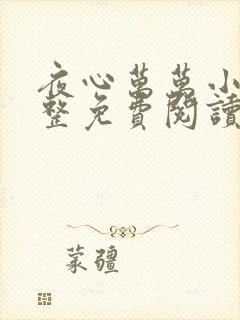 夜心萬萬小
整免費閱讀
蒙疆